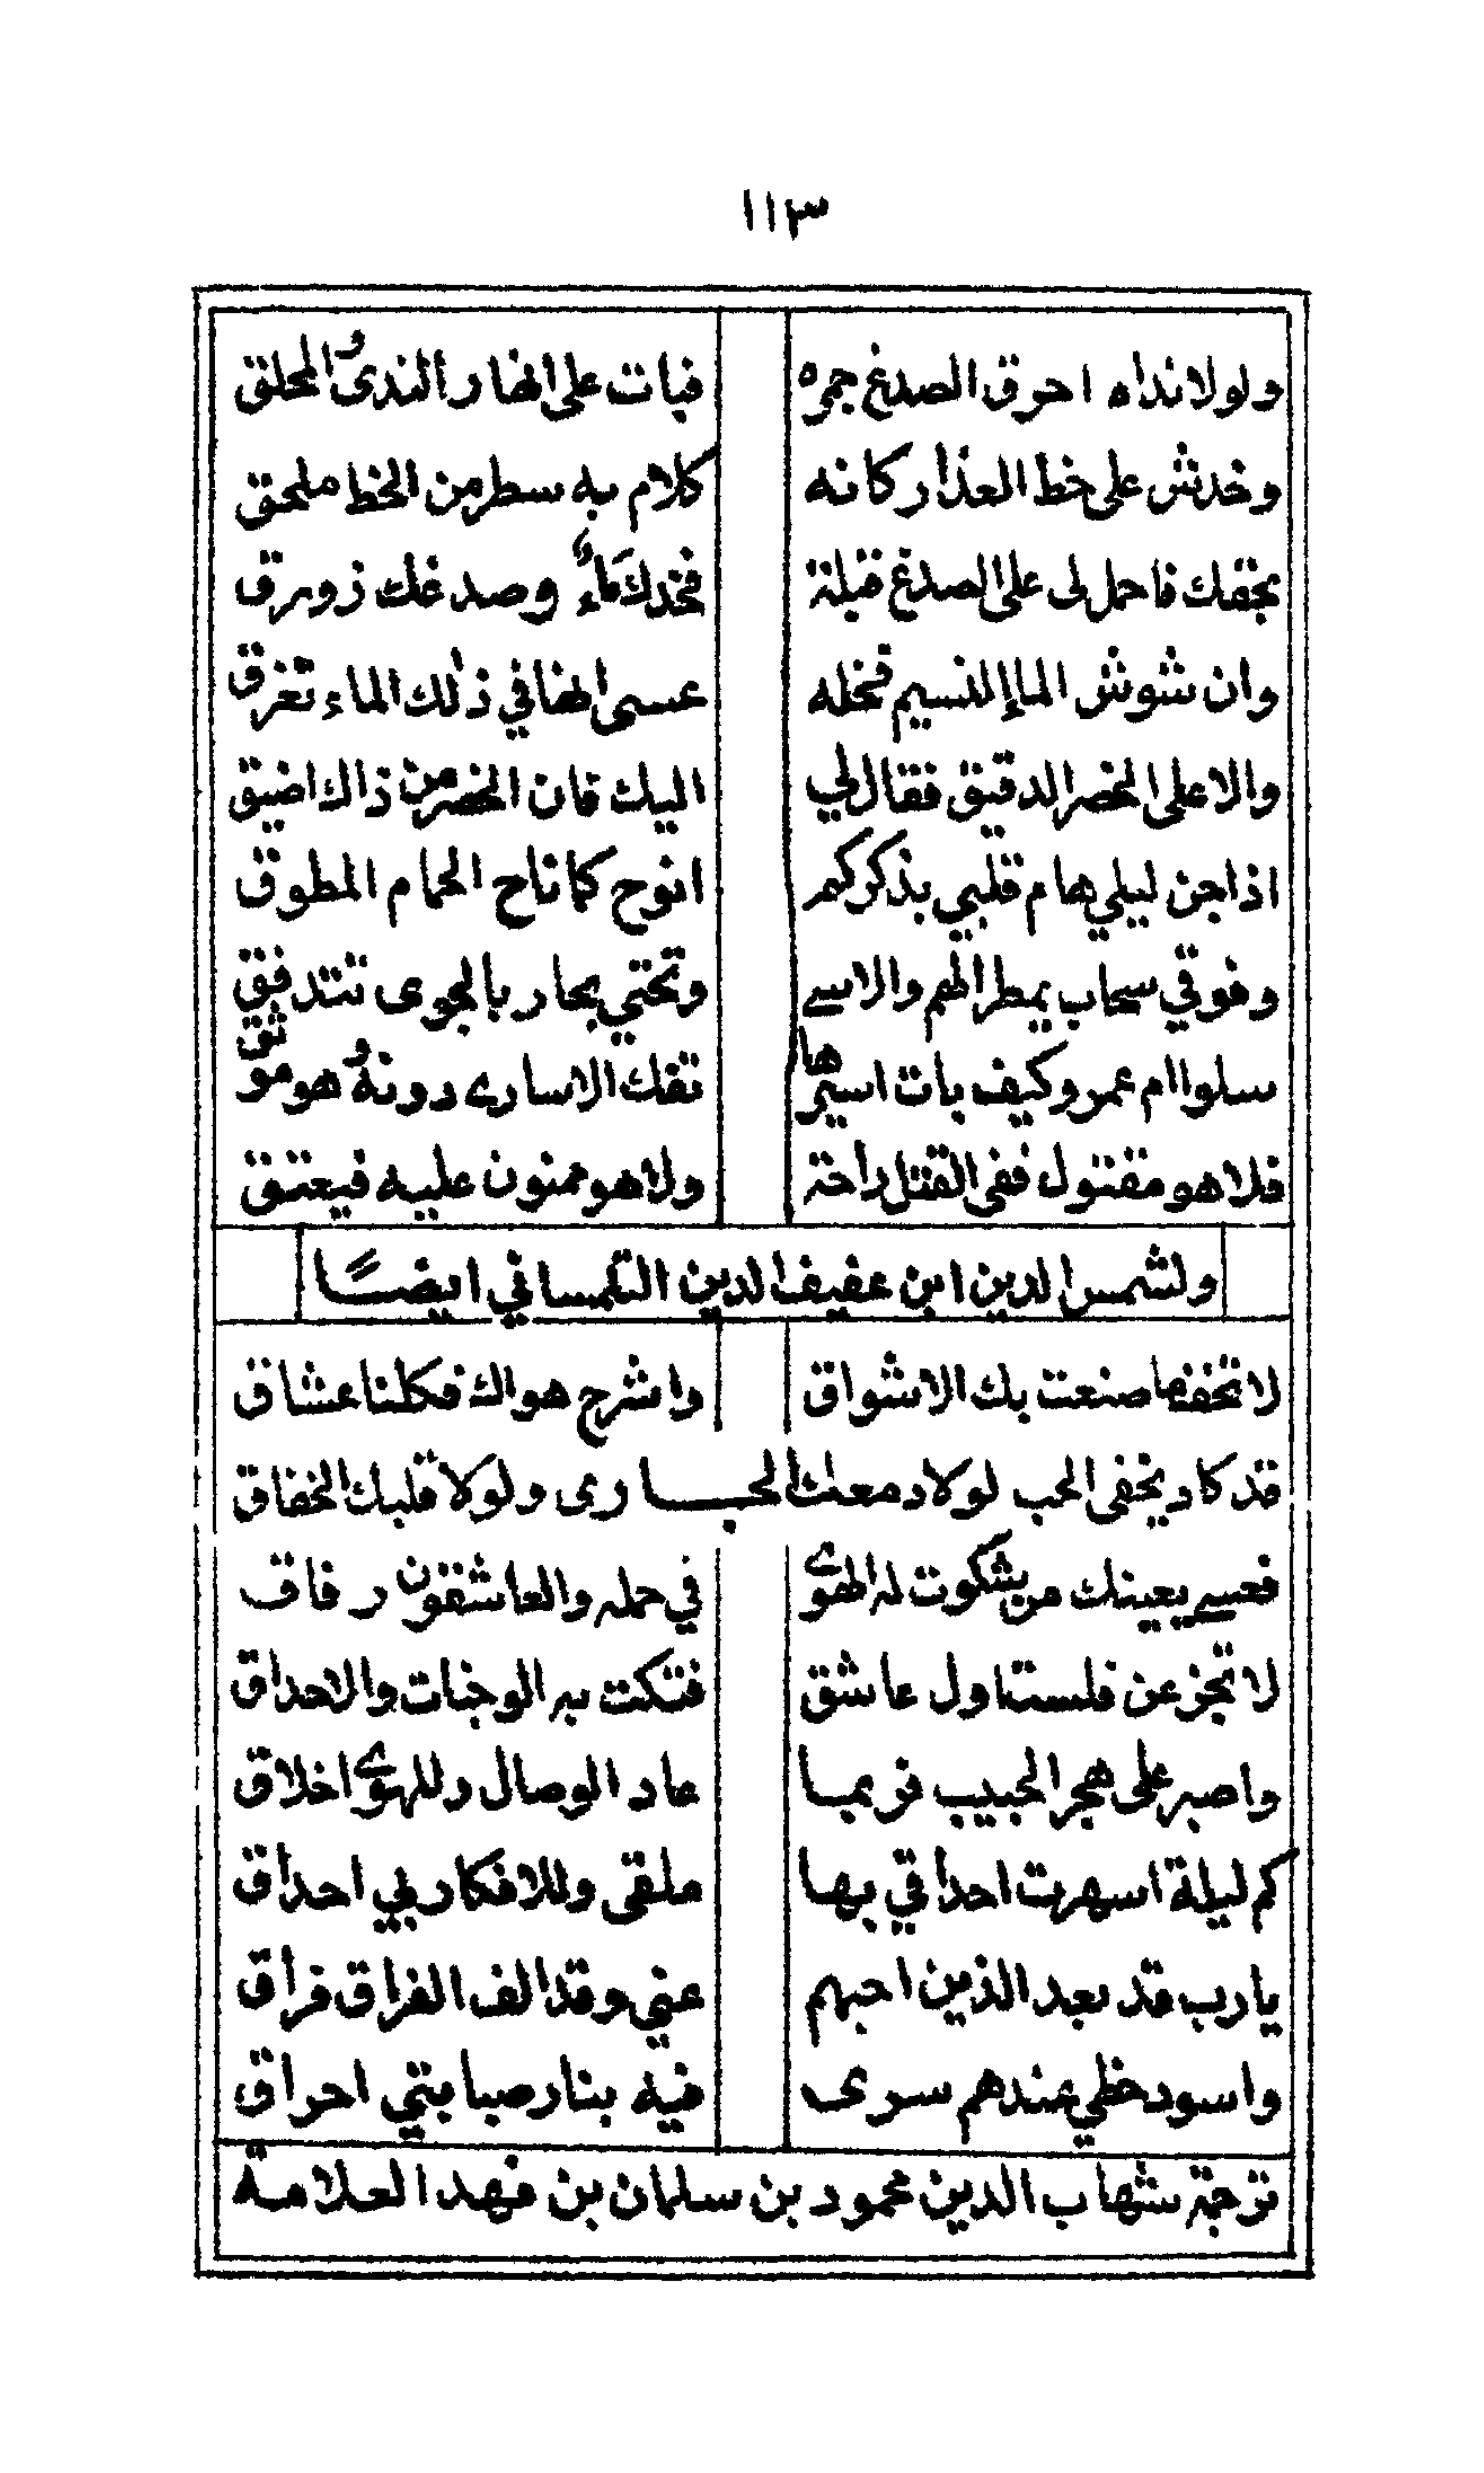 ١١٣
ولولا نداه احرق الصدغ جمره فبات على النار الندى والمحلق
وخدش على خط العذار كانه كلام به سطر من الخط ملحق
بجفنك فاحمل لى على الصدغ قبلة فخدك ماء وصدغك زورق
وان شوش الماء النسيم فخله عسى انها في ذلك الماء تغرق
والا على الخصر الدقيق فقال لي اليك فان الخصر من ذاك اضيق
اذا جن ليلي هام قلبي بذكركم انوح كما ناح الحمام المطوق
وفوقي سحاب يمطر الهم والاسى وتحتي بحار بالجوى تتدفق
سلوا ام عمرو كيف بات اسيرها تفك الاسارى دونه وهو موثق
فلا هو مقتول ففى القتل راحة ولا هو ممنون عليه فيعتق
ولشمس الدين ابن عفيف الدين التلمساني ايضًا
لا تخف ما صنعت بك الاشواق واشرح هواك فكلنا عشاق
قد كاد يخفى الحب لولا دمعك الجارى ولولا قلبك الخفاق
فعسى يعينك من شكوت له الهوى في حمله والعاشقون رفاق
لا تجزعن فلست اول عاشق فتكت به الوجنات والاحداق
واصبر على هجر الحبيب فربما عاد الوصال وللهوى اخلاق
كم ليلة اسهرت احداقي بها ملقى وللافكار بي احداق
يارب قد بعد الذين احبهم عني وقد الف الفراق فراق
واسود حظي عندهم سرى فيه بنار صبابتي احراق
ترجمة شهاب الدين محمود بن سلمان بن فهد العلامة